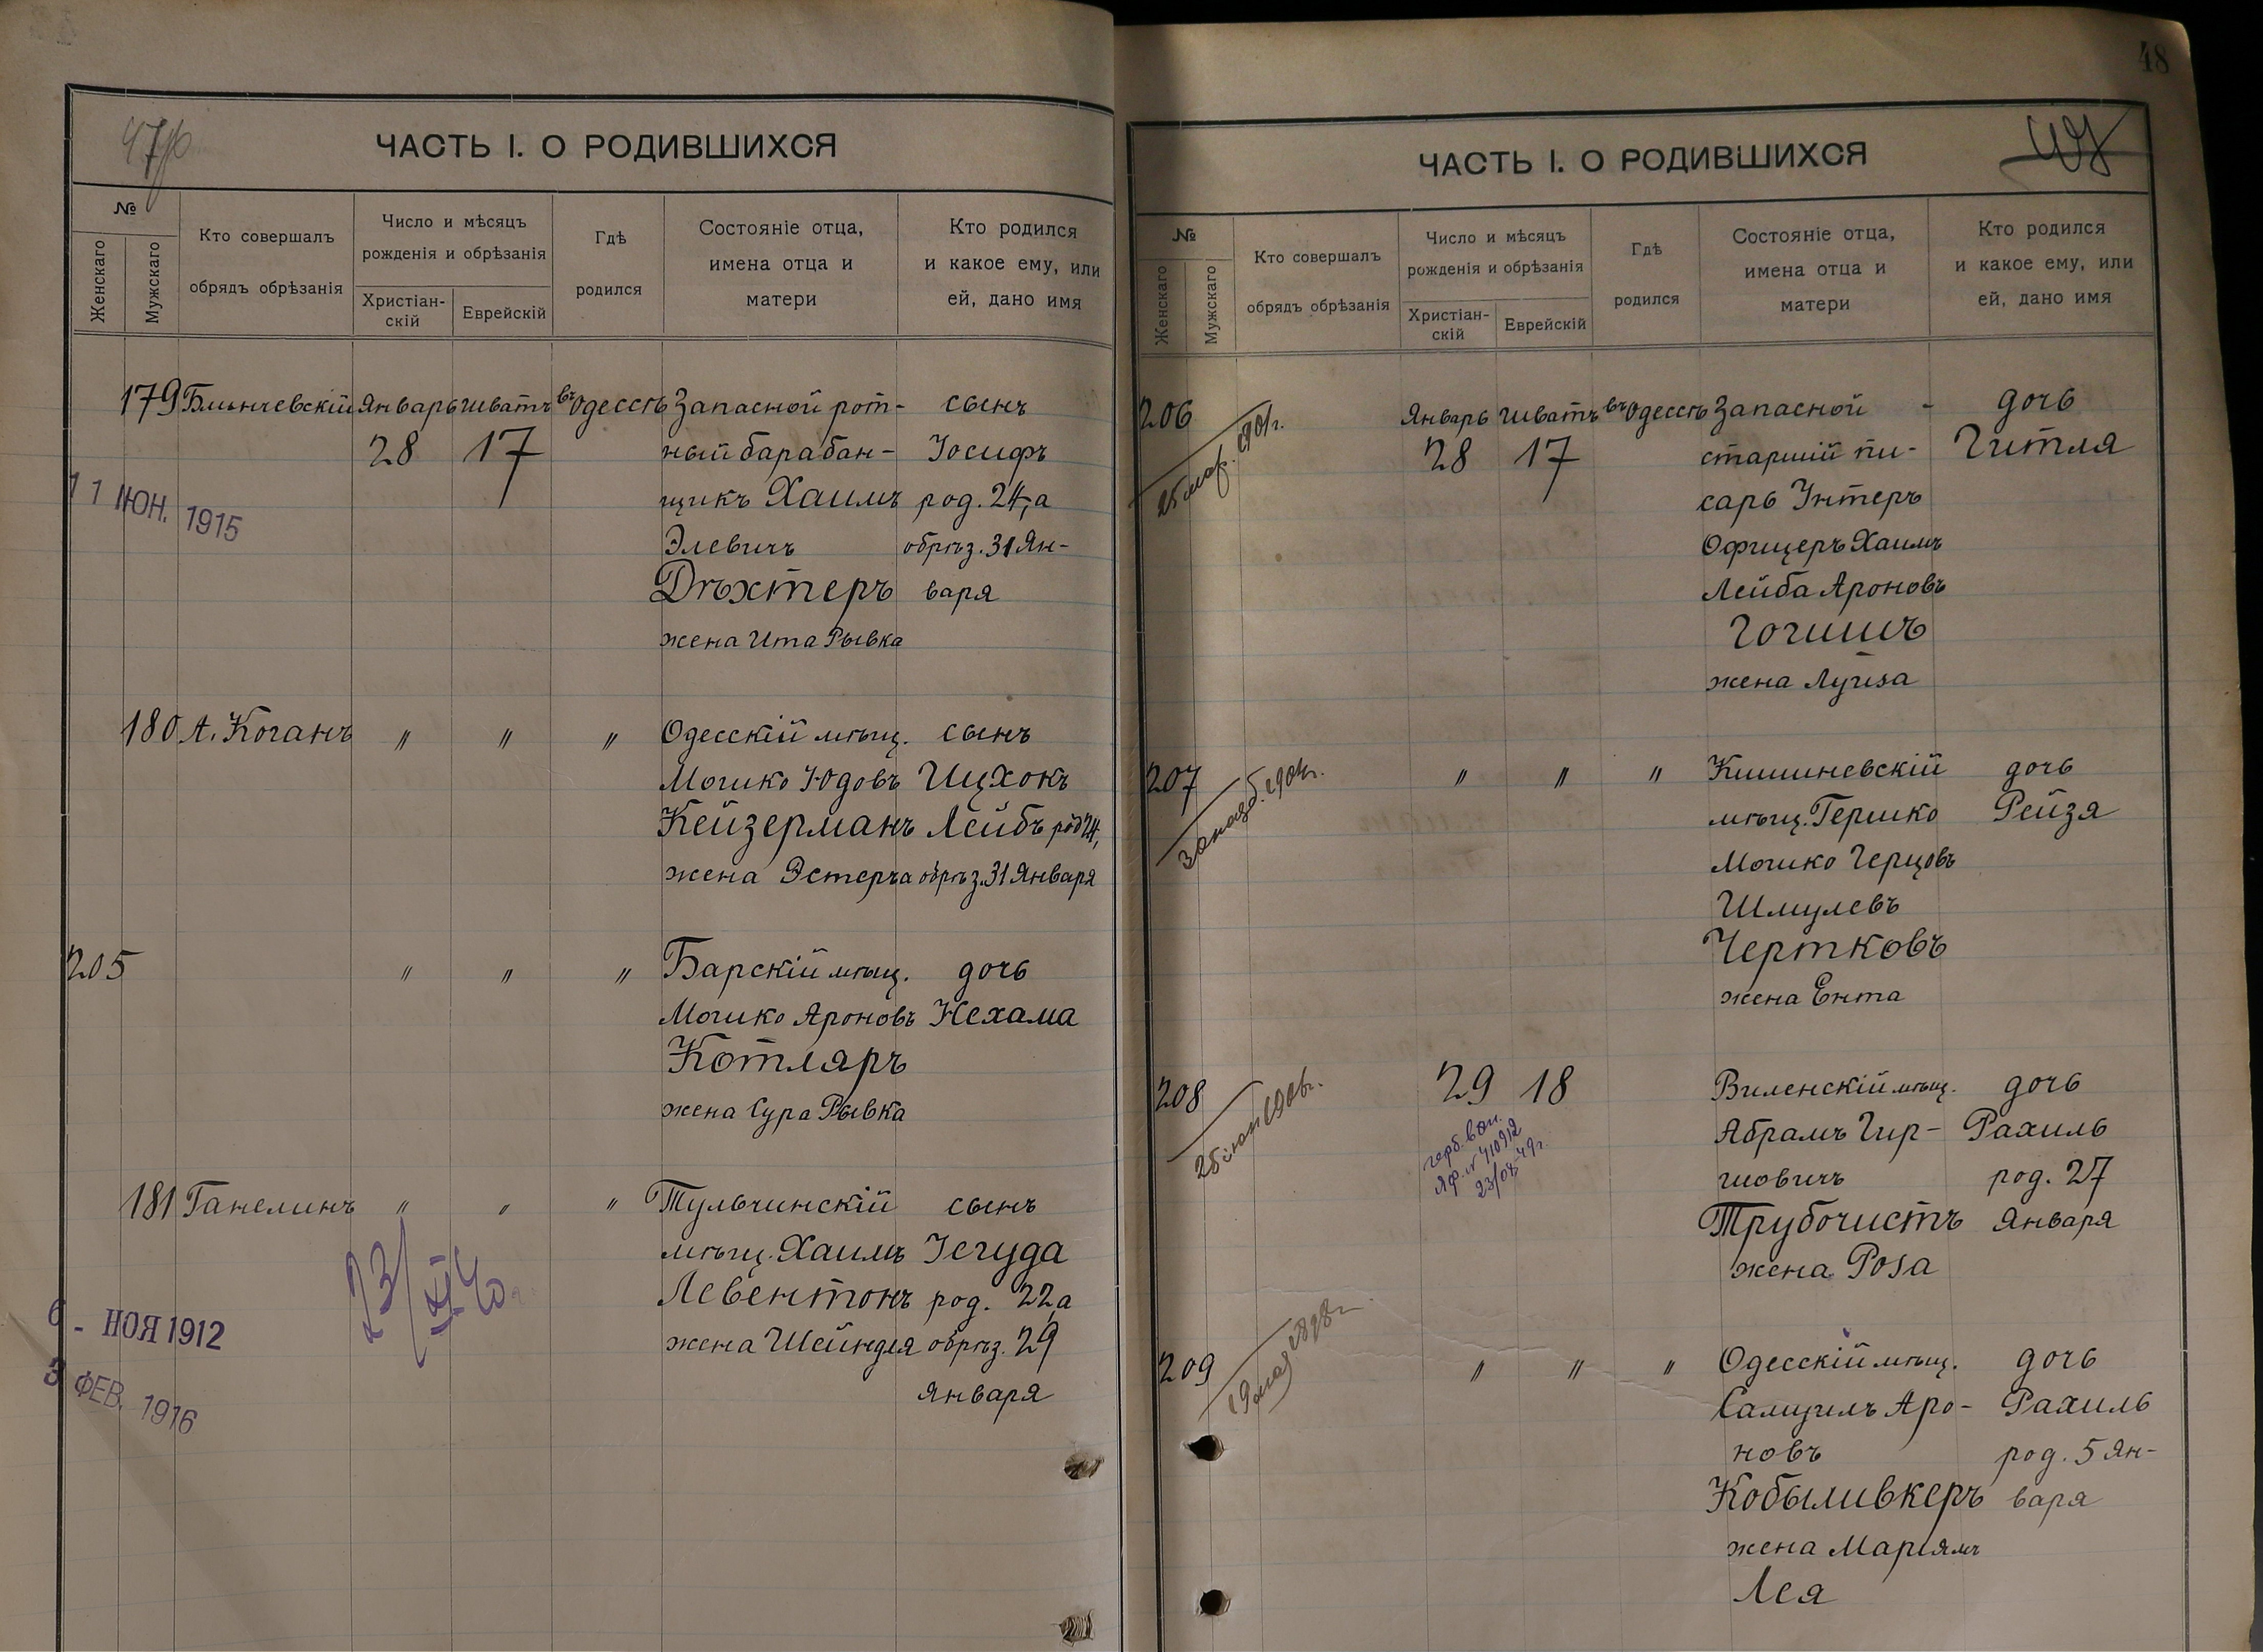 ЧАСТЬ I. О РОДИВШИХСЯ
№
Женскаго
Мужскаго
Кто совершалъ
обрядъ обрѣзанія
Число и мѣсяцъ
рожденія и обрѣзанія
Христіан-
скій
Еврейскій
Гдѣ
родился
Состояніе отца,
имена отца и
матери
Кто родился
и какое ему, или
ей, дано имя
179 Январь Шватъ въ Одессѣ Запасной рот- сынъ
28 17 ный барабан- Іосифъ
щикъ Хаимъ род. 24, а
1 ІЮН. 1915
Элевичъ обрѣз. 31 Ян-
Дѣхтеръ варя
жена Ита Рывка
180 А. Коганъ " " " Одесскій мѣщ. сынъ
Мошко Юдовъ Ицхокъ
Кейзерманъ Лейбъ род 24,
жена Эстеръ а обрѣз. 31 Января
205 " " " Барскій мѣщ. дочь
Мошко Ароновъ Нехама
Котляръ
жена Сура Рывка
181 Ганелинъ " " " Тульчинскій сынъ
мѣщ. Хаимъ Іегуда
Левентонъ род. 22, а
жена Шейндля обрѣз. 29
Января
6 - НОЯ 1912
3 ФЕВ. 1916
48
ЧАСТЬ I. О РОДИВШИХСЯ
№
Женскаго
Мужскаго
Кто совершалъ
обрядъ обрѣзанія
Число и мѣсяцъ
рожденія и обрѣзанія
Христіан-
скій
Еврейскій
Гдѣ
родился
Состояніе отца,
имена отца и
матери
Кто родился
и какое ему, или
ей, дано имя
206 Январь Шватъ въ Одессѣ Запасной - дочь
28 17 старшій пи- Гитля
сарь Унтеръ
Офицеръ Хаимъ
Лейба Ароновъ
Гогишъ
жена Луиза
207 " " " Кишиневскій дочь
мѣщ. Гершко Рейзя
Мошко Герцовъ
Шмулевъ
Чертковъ
жена Ента
208 29 18 Виленскій мѣщ. дочь
Абрамъ Гир- Рахиль
шовичъ род. 27
Трубочистъ Января
жена Роза
209 " " " Одесскій мѣщ. дочь
Самуилъ Аро- Рахиль
новъ род. 5 Ян-
Кобыливкеръ варя
жена Маріямъ
Лея